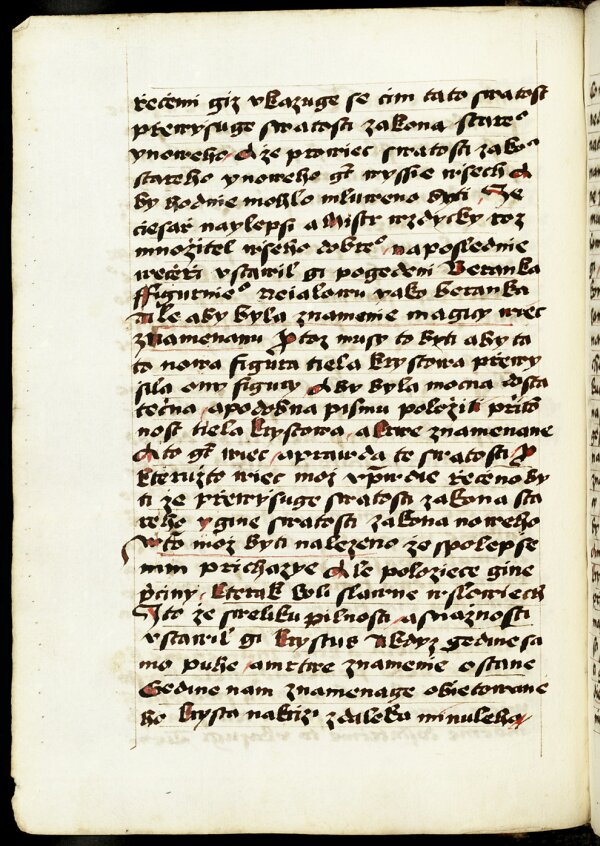 řečémi giz vkazuge se čim tato swatost
přewyssuge swatosti zakona stare°
ynoweho A že prowiec swatosti zako°
stareho ynoweho gt wyssie wsech A
by hodnie mohlo mluweno byti Že
ciesař naylepsi a Mistr wzdycky roz
množitel wseho dobre° naposlednie
wečeři vstawil gi po gedeni Beranka
ffigurnie° neialowu yako beranka
Ale aby byla znamenie magicy wiec
znamenanu Protoz musy to byti aby ta
to nowa figura tiela krystowa přewy
sila ony figury Aby byla mocna dosta
tečna apodobna pismu položili přito
nost tiela krystowa akrwe znamenane
A to gt wiec aprawda te swatosti
kteružto wiec moz vprwdie řečeno by
ti že přewyssuge swatosti zakona sta
reho ygine swatosti zakona noweho
W tom moz byti nalezeno že spolepse
nim prichazye Ale poloziece gine
přiciny kterak koli slawne wslowiech
Jto že sweliku pilnosti asnažnosti
vstawil gi krystus Akdyz gedine sa
mo puhe amrtwe znamenie ostane
Gedine nam znamenage obietowane
ho krysta nakřiz' zdaleka minuleho